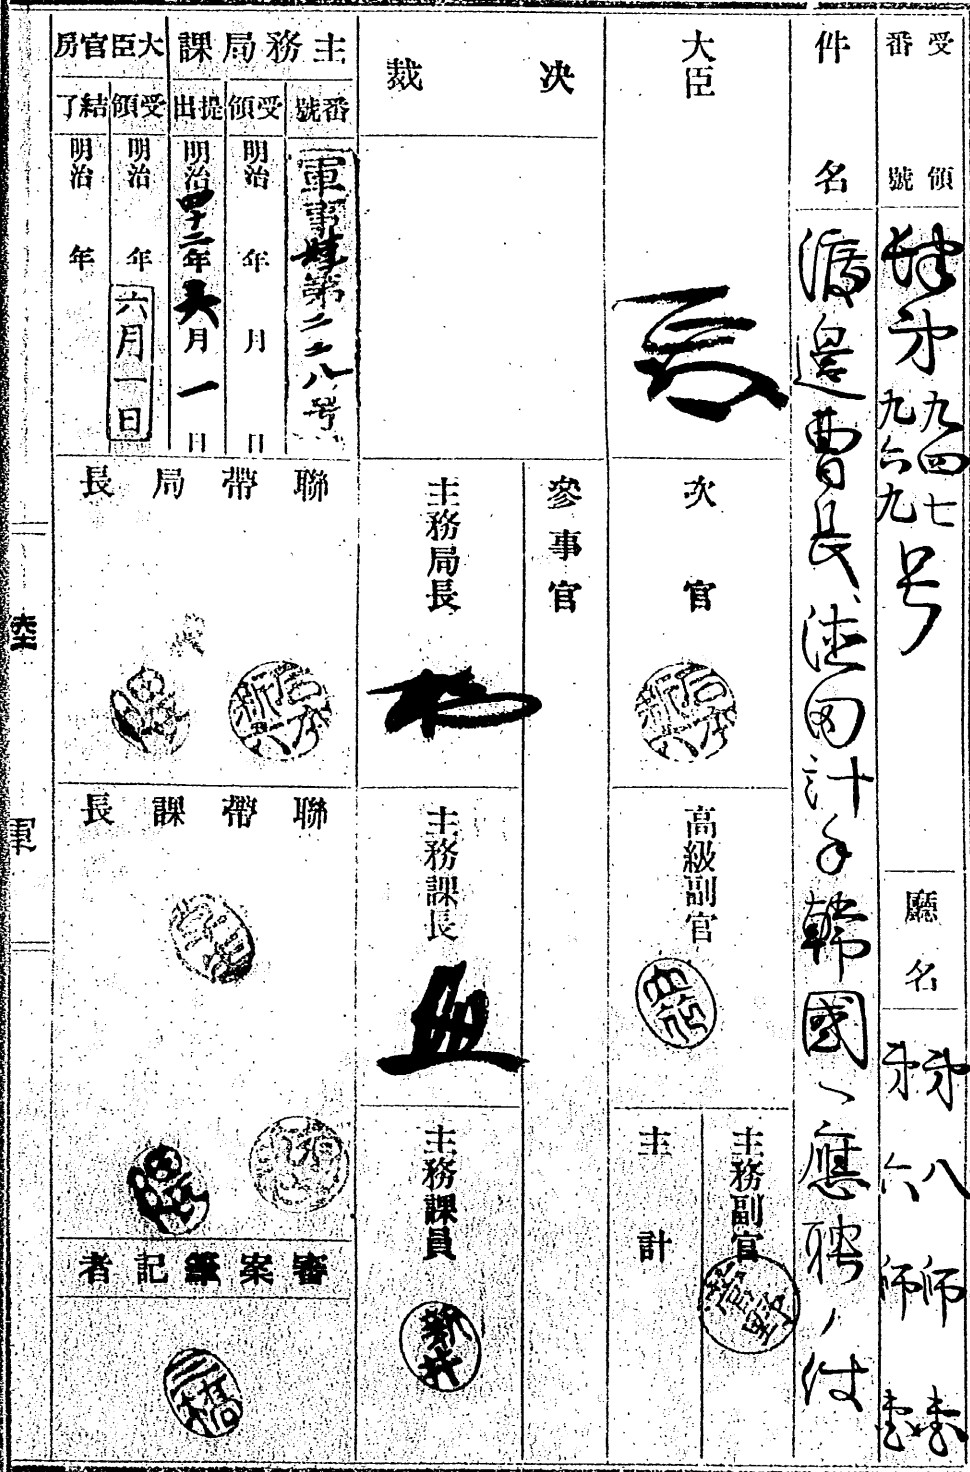 受領
番號
第
九四七
九六九
号
廳名
第八師
第六師
件名
渡邉曹長池田計手韓國ヘ應聘ノ件
大臣
次官
石本新六
高級副官
主務副官
菅野
主計
決裁
參事官
主務局長
主務課長
主務課員
主務局課
番號
軍事 第二二八号
受領
明治 年 月 日
提出
明治四十二年 月一日
大臣官房
受領
明治 年六月一日
結了
明治 年
聯帶局長
石本新六
聯帶課長
審案筆記者
三橋
陸
軍